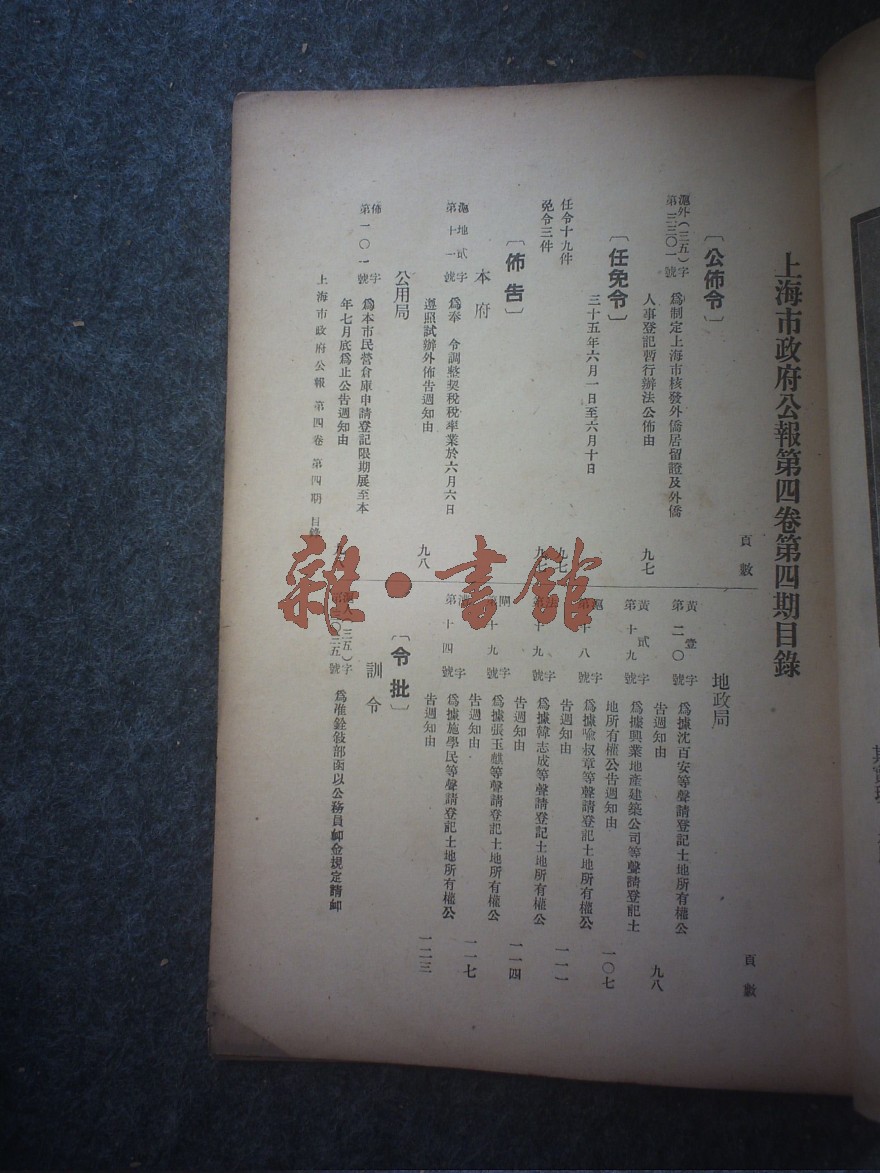 上海市政府公報第四卷第四期目錄
頁數
〔公佈令〕
滬外(三五)字
第三三〇一號
爲制定上海市核發外僑居留證及外僑
人事登記暫行辦法公佈由
九七
〔任免令〕
三十五年六月一日至六月十日
任令十九件
九七
免令三件
九七
〔佈告〕
本府
滬地貳字
第十一號
爲奉 令調整契稅稅率業於六月六日
遵照試辦外佈告週知由
九八
公用局
佈字
第一〇一號
爲本市民營倉庫申請登記限期展至本
年七月底爲止公告週知由
九八
頁數
地政局
黃壹字
第二〇號
爲據沈百安等聲請登記土地所有權公
告週知由
九八
黃貳字
第十九號
爲據興業地產建築公司等聲請登記土
地所有權公告週知由
一〇七
滬字
第十八號
爲據喩叔章等聲請登記土地所有權公
告週知由
一一一
字
第十九號
爲據韓志成等聲請登記土地所有權公
告週知由
一一四
閘字
第十九號
爲據張玉麒等聲請登記土地所有權公
告週知由
一一七
字
第十四號
爲據施學民等聲請登記土地所有權公
告週知由
一二三
〔令批〕
訓令
(三五)字
第 〇二五號
爲准銓敍部函以公務員卹金規定請卹
上海市政府公報 第四卷 第四期 目錄
雜·書館